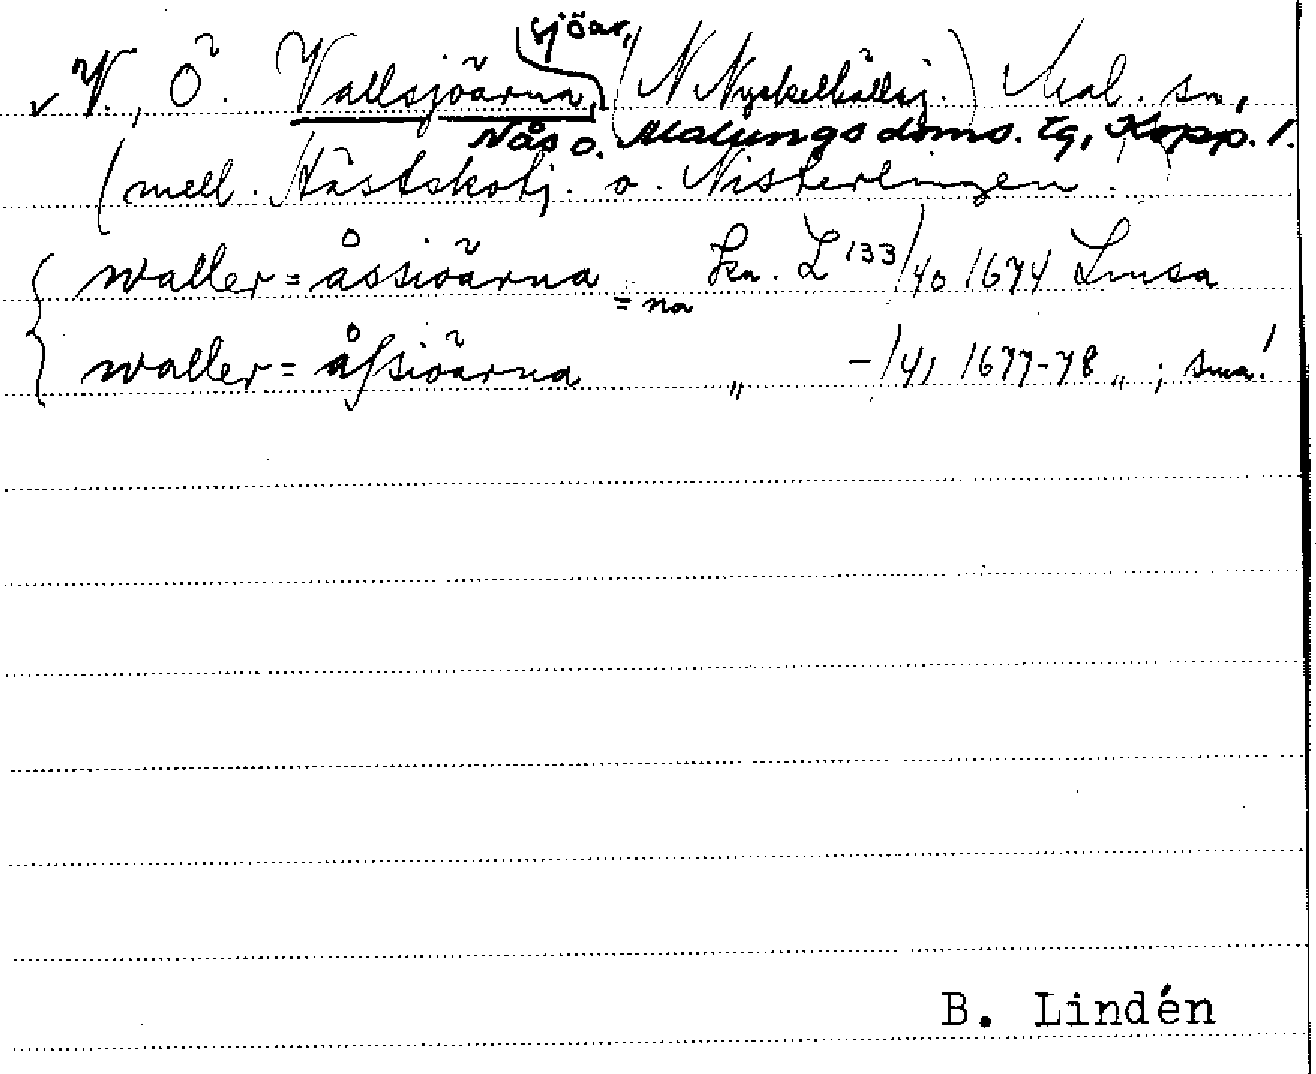 sjöar,
V., Ö. Vallsjöarna, (N Nyckelhållsj.) Mal. sn,
Nås o. Malungs doms. tg, Kopp. l.
(mell. Hästskotj. o. Nisterlingen.
waller=åssiöarna =na Ln. L 133/40 1674 Limsa
waller=åſsiöarna „ -/41 1677-78 „ ; små!
B. Lindén